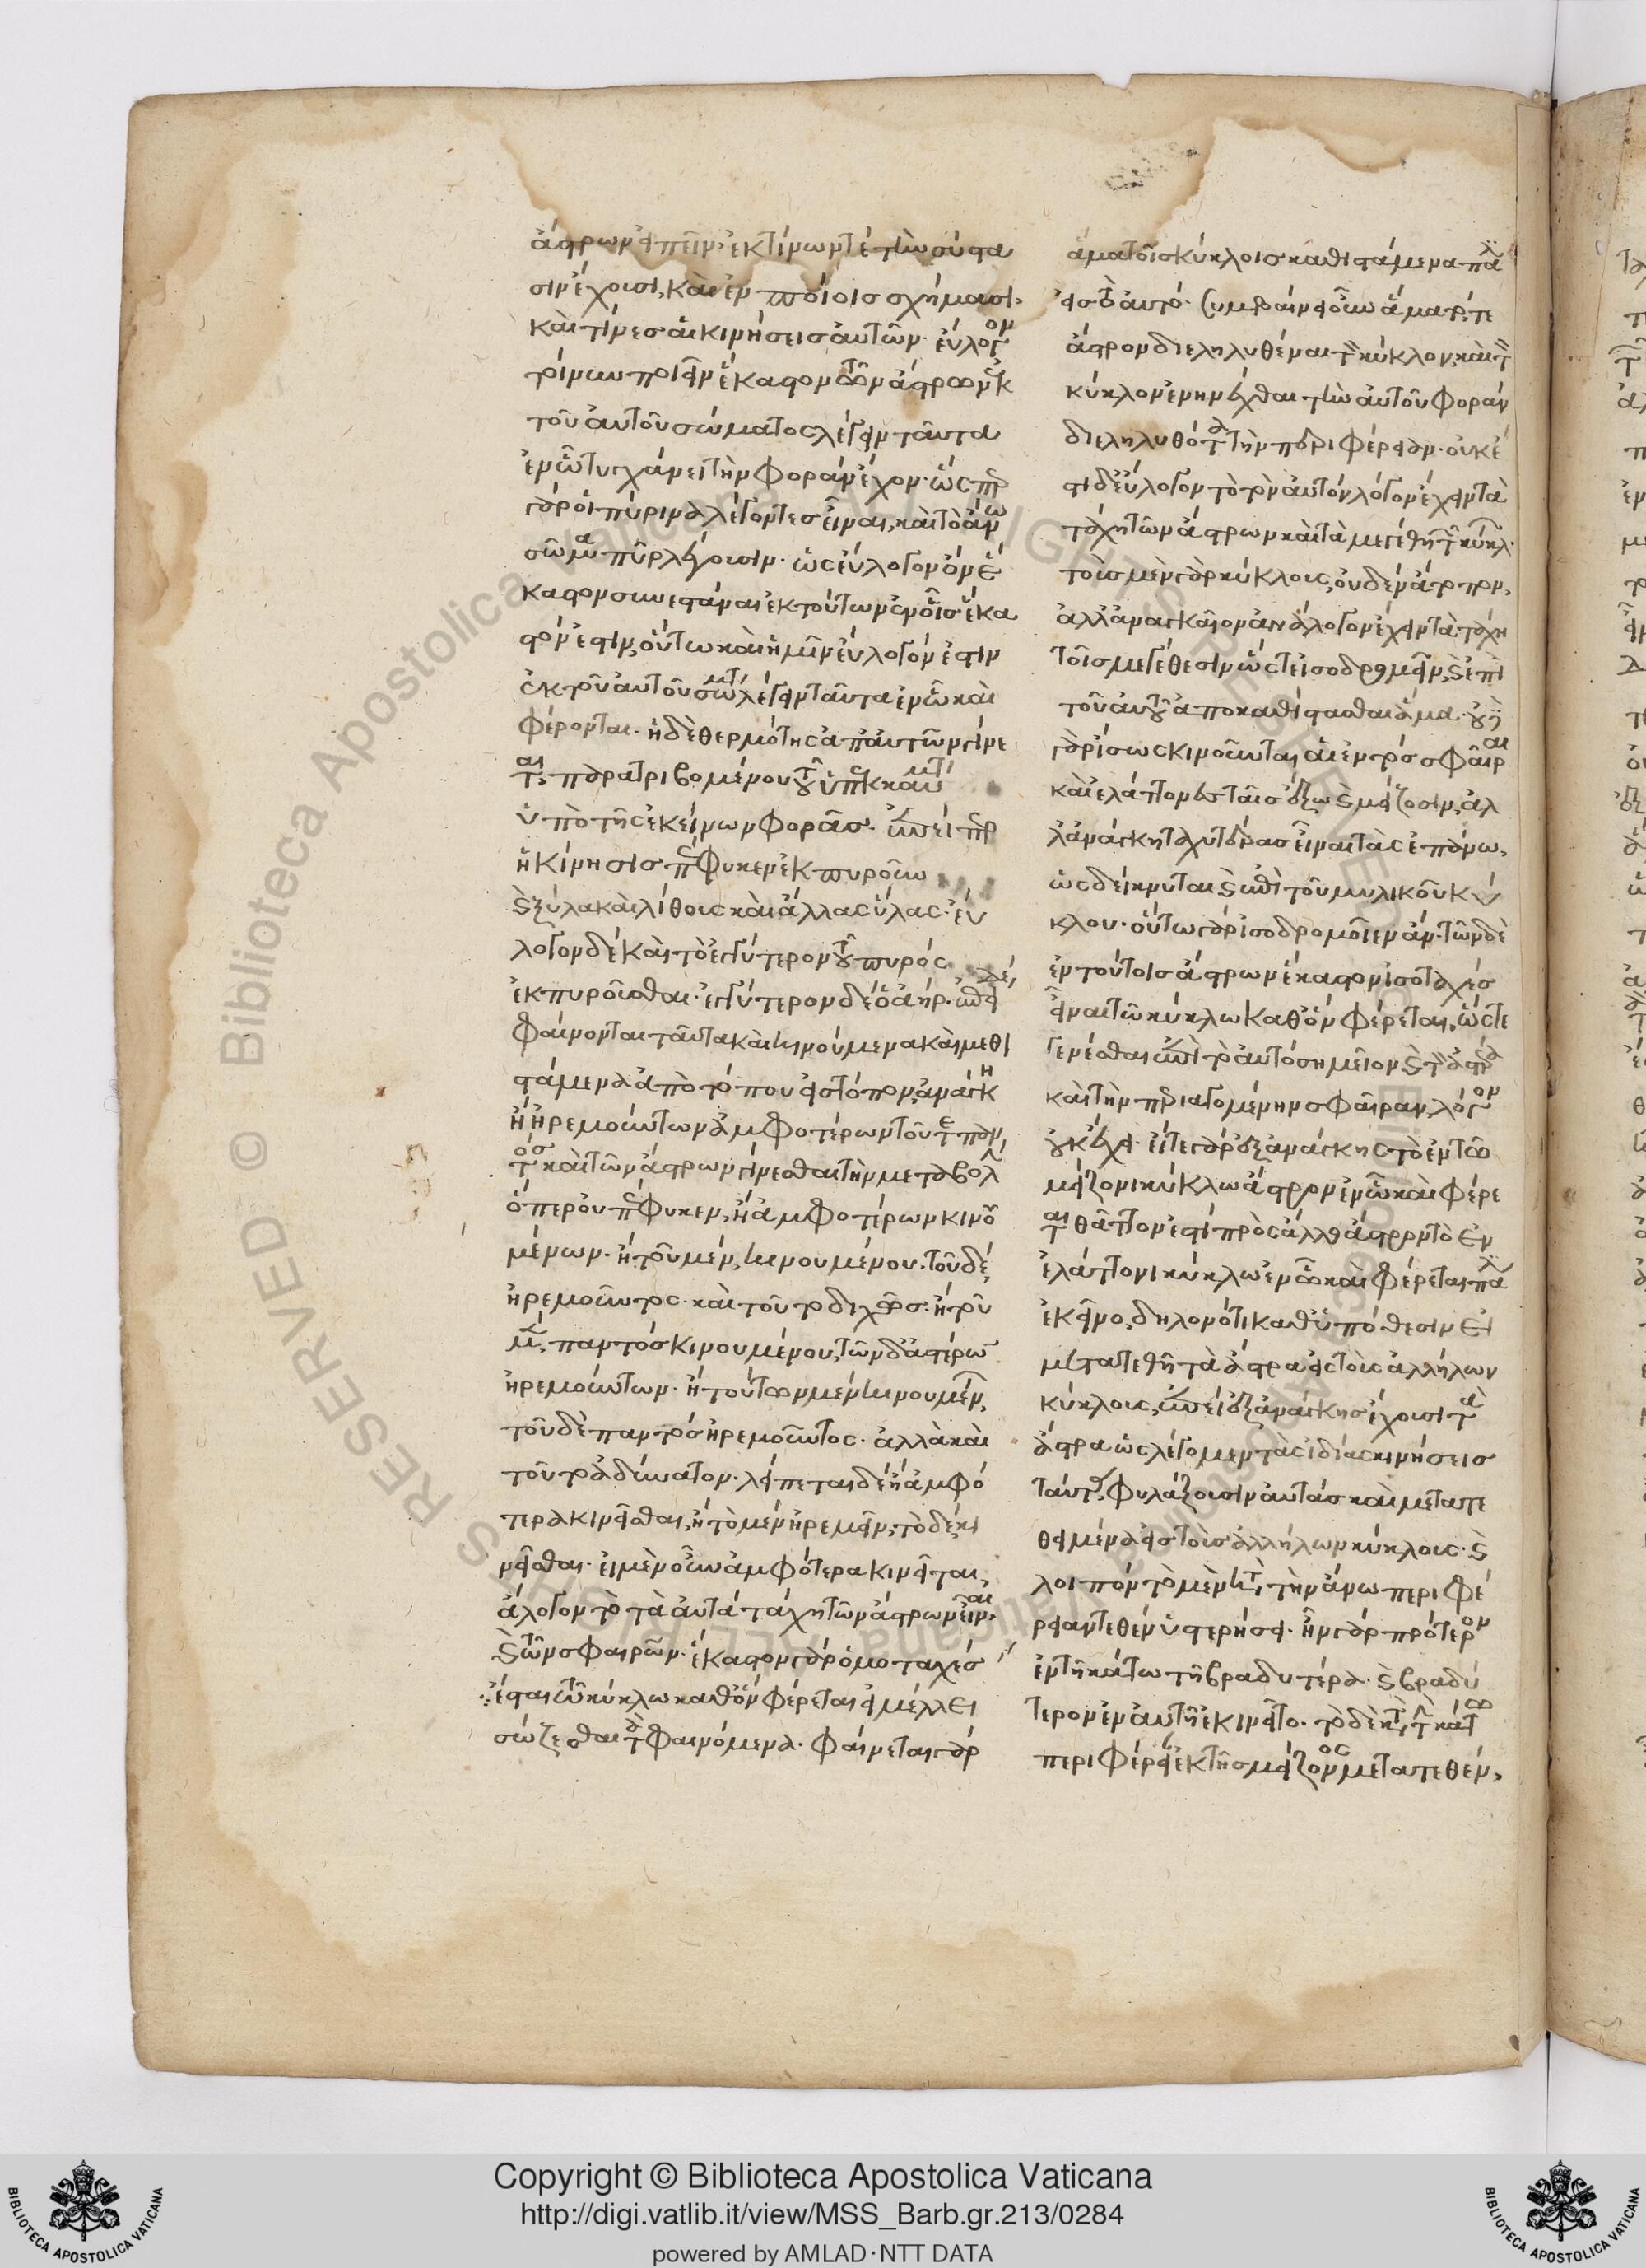 ἄστρων εἰπεῖν· ἐκ τίνων τὲ τὴν σύστα
σιν ἔχουσι, καὶ ἐν ποίοις σχήμασι·
καὶ τίνες αἱ κινήσεις αὐτῶν· εὔλογον
τοίνυν ποιεῖν ἕκαστον τῶν ἄστρων ἐκ
τοῦ αὐτοῦ σώματος λέγειν ταῦτα
ἐν ᾧ τυγχάνει τὴν φορὰν ἔχον· ὥσπερ
γὰρ οἱ πύρινα λέγοντες εἶναι, καὶ τὸ ἄνω
σῶμα πῦρ λέγουσιν· ὡς εὔλογον ὂν ἕ
καστον συνεστάναι ἐκ τούτων ἐν οἷς ἕκα
στόν ἐστιν, οὕτω καὶ ἡμῖν εὔλογόν ἐστιν
ἐκ τοῦ αὐτοῦ σώματος λέγειν ταῦτα ἐν ᾧ καὶ
φέρονται· ἡ δὲ θερμότης ἀπ' αὐτῶν γίνε
ται παρατριβομένου τοῦ ὑπεκκαύματος
ὑπὸ τῆς ἐκείνων φορᾶς· ἐπείπερ
ἡ κίνησις πέφυκεν ἐκπυροῦν
καὶ ξύλα καὶ λίθους καὶ ἄλλας ὕλας· εὔ
λογον δὲ καὶ τὸ ἐγγύτερον τοῦ πυρός
ἐκπυροῦσθαι· ἐγγύτερον δὲ ὁ ἀήρ· ἐπεὶ δὲ
φαίνονται ταῦτα καὶ κινούμενα καὶ μεθι
στάμενα ἀπὸ τόπου εἰς τόπον, ἀνάγκη
ἢ ἠρεμούντων ἀμφοτέρων τοῦ τε παν
τὸς καὶ τῶν ἄστρων γίνεσθαι τὴν μεταβολὴν
ὅπερ οὐ πέφυκεν, ἢ ἀμφοτέρων κινου
μένων· ἢ τοῦ μὲν κινουμένου· τοῦ δὲ
ἠρεμοῦντος· καὶ τοῦτο διχῶς· ἢ τοῦ
μὲν παντὸς κινουμένου, τῶν δ' ἀστέρων
ἠρεμούντων· ἢ τούτων μὲν κινουμένων,
τοῦ δὲ παντὸς ἠρεμοῦντος· ἀλλὰ καὶ
τοῦτο ἀδύνατον· λείπεται δὲ ἢ ἀμφό
τερα κινεῖσθαι, ἢ τὸ μὲν ἠρεμεῖν, τὸ δὲ κι
νεῖσθαι· εἰ μὲν οὖν ἀμφότερα κινεῖται,
ἄλογον τὸ τὰ αὐτὰ τάχη τῶν ἄστρων εἶναι
καὶ τῶν σφαιρῶν· ἕκαστον γὰρ ὁμοταχὲς
ἔσται τῷ κύκλῳ καθ' ὃν φέρεται εἰ μέλλει
σώζεσθαι τὰ φαινόμενα· φαίνεται γὰρ
ἅμα τοῖς κύκλοις καθιστάμενα πάλιν
εἰς τὸ αὐτό· συμβαίνει οὖν ἅμα τό τε
ἄστρον διεληλυθέναι τὸν κύκλον, καὶ τὸν
κύκλον ἐνηνέχθαι τὴν αὐτοῦ φορὰν
διεληλυθότα τὴν περιφέρειαν· οὐκ ἔ
στι δὲ εὔλογον τὸ τὸν αὐτὸν λόγον ἔχειν τὰ
τάχη τῶν ἄστρων καὶ τὰ μεγέθη τῶν κύκλων·
τοῖς μὲν γὰρ κύκλοις, οὐδὲν ἄτοπον,
ἀλλ' ἀναγκαῖον ἀνάλογον ἔχειν τὰ τάχη
τοῖς μεγέθεσιν ὥστε ἰσοδρομεῖν, καὶ ἐπὶ
τοῦ αὐτοῦ ἀποκαθίστασθαι ἅμα· οὐ
γὰρ ἴσως κινοῦνται αἱ ἐντὸς σφαῖραι
καὶ ἐλάττους ταῖς ἔξω καὶ μείζοσιν, ἀλ
λ' ἀνάγκη ταχυτέρας εἶναι τὰς ἐπάνω,
ὡς δείκνυται καὶ ἐπὶ τοῦ μυλικοῦ κύ
κλου· οὕτω γὰρ ἰσοδρομοῖεν ἄν· τῶν δὲ
ἐν τούτοις ἄστρων ἕκαστον ἰσοταχὲς
εἶναι τῷ κύκλῳ καθ' ὃν φέρεται, ὥστε
γενέσθαι ἐπὶ τὸ αὐτὸ σημεῖον καὶ τὸν ἀστέρα
καὶ τὴν περιαγομένην σφαῖραν, λόγον
οὐκ ἔχει· εἴτε γὰρ ἐξ ἀνάγκης τὸ ἐν τῷ
μείζονι κύκλῳ ἄστρον ἐν ᾧ καὶ φέρε
ται θᾶττόν ἐστι πρὸς ἄλλο ἄστρον τὸ ἐν
ἐλάττονι κύκλῳ ἐν ᾧ καὶ φέρεται πάλιν
ἐκεῖνο, δηλονότι καθ' ὑπόθεσιν εἰ
μετατεθῇ τὰ ἄστρα εἰς τοὺς ἀλλήλων
κύκλους, ἐπεὶ ἐξ ἀνάγκης ἔχουσι τὰ
ἄστρα ὡς λέγομεν τὰς ἰδίας κινήσεις
ταύτας, φυλάξουσιν αὐτὰς καὶ μετατε
θειμένα εἰς τοὺς ἀλλήλων κύκλους· καὶ
λοιπὸν τὸ μὲν κατὰ τὴν ἄνω περιφέ
ρειαν τεθὲν ὑστερήσει· ἦν γὰρ πρότερον
ἐν τῇ κάτω τῇ βραδυτέρα· καὶ βραδύ
τερον ἐν αὐτῇ ἐκινεῖτο· τὸ δὲ κατὰ τὴν κάτω
περιφέρειαν ἐκ τῆς μείζονος μετατεθὲν,
Copyright © Biblioteca Apostolica Vaticana
http://digi.vatlib.it/view/MSS_Barb.gr.213/0284
powered by AMLAD·NTT DATA